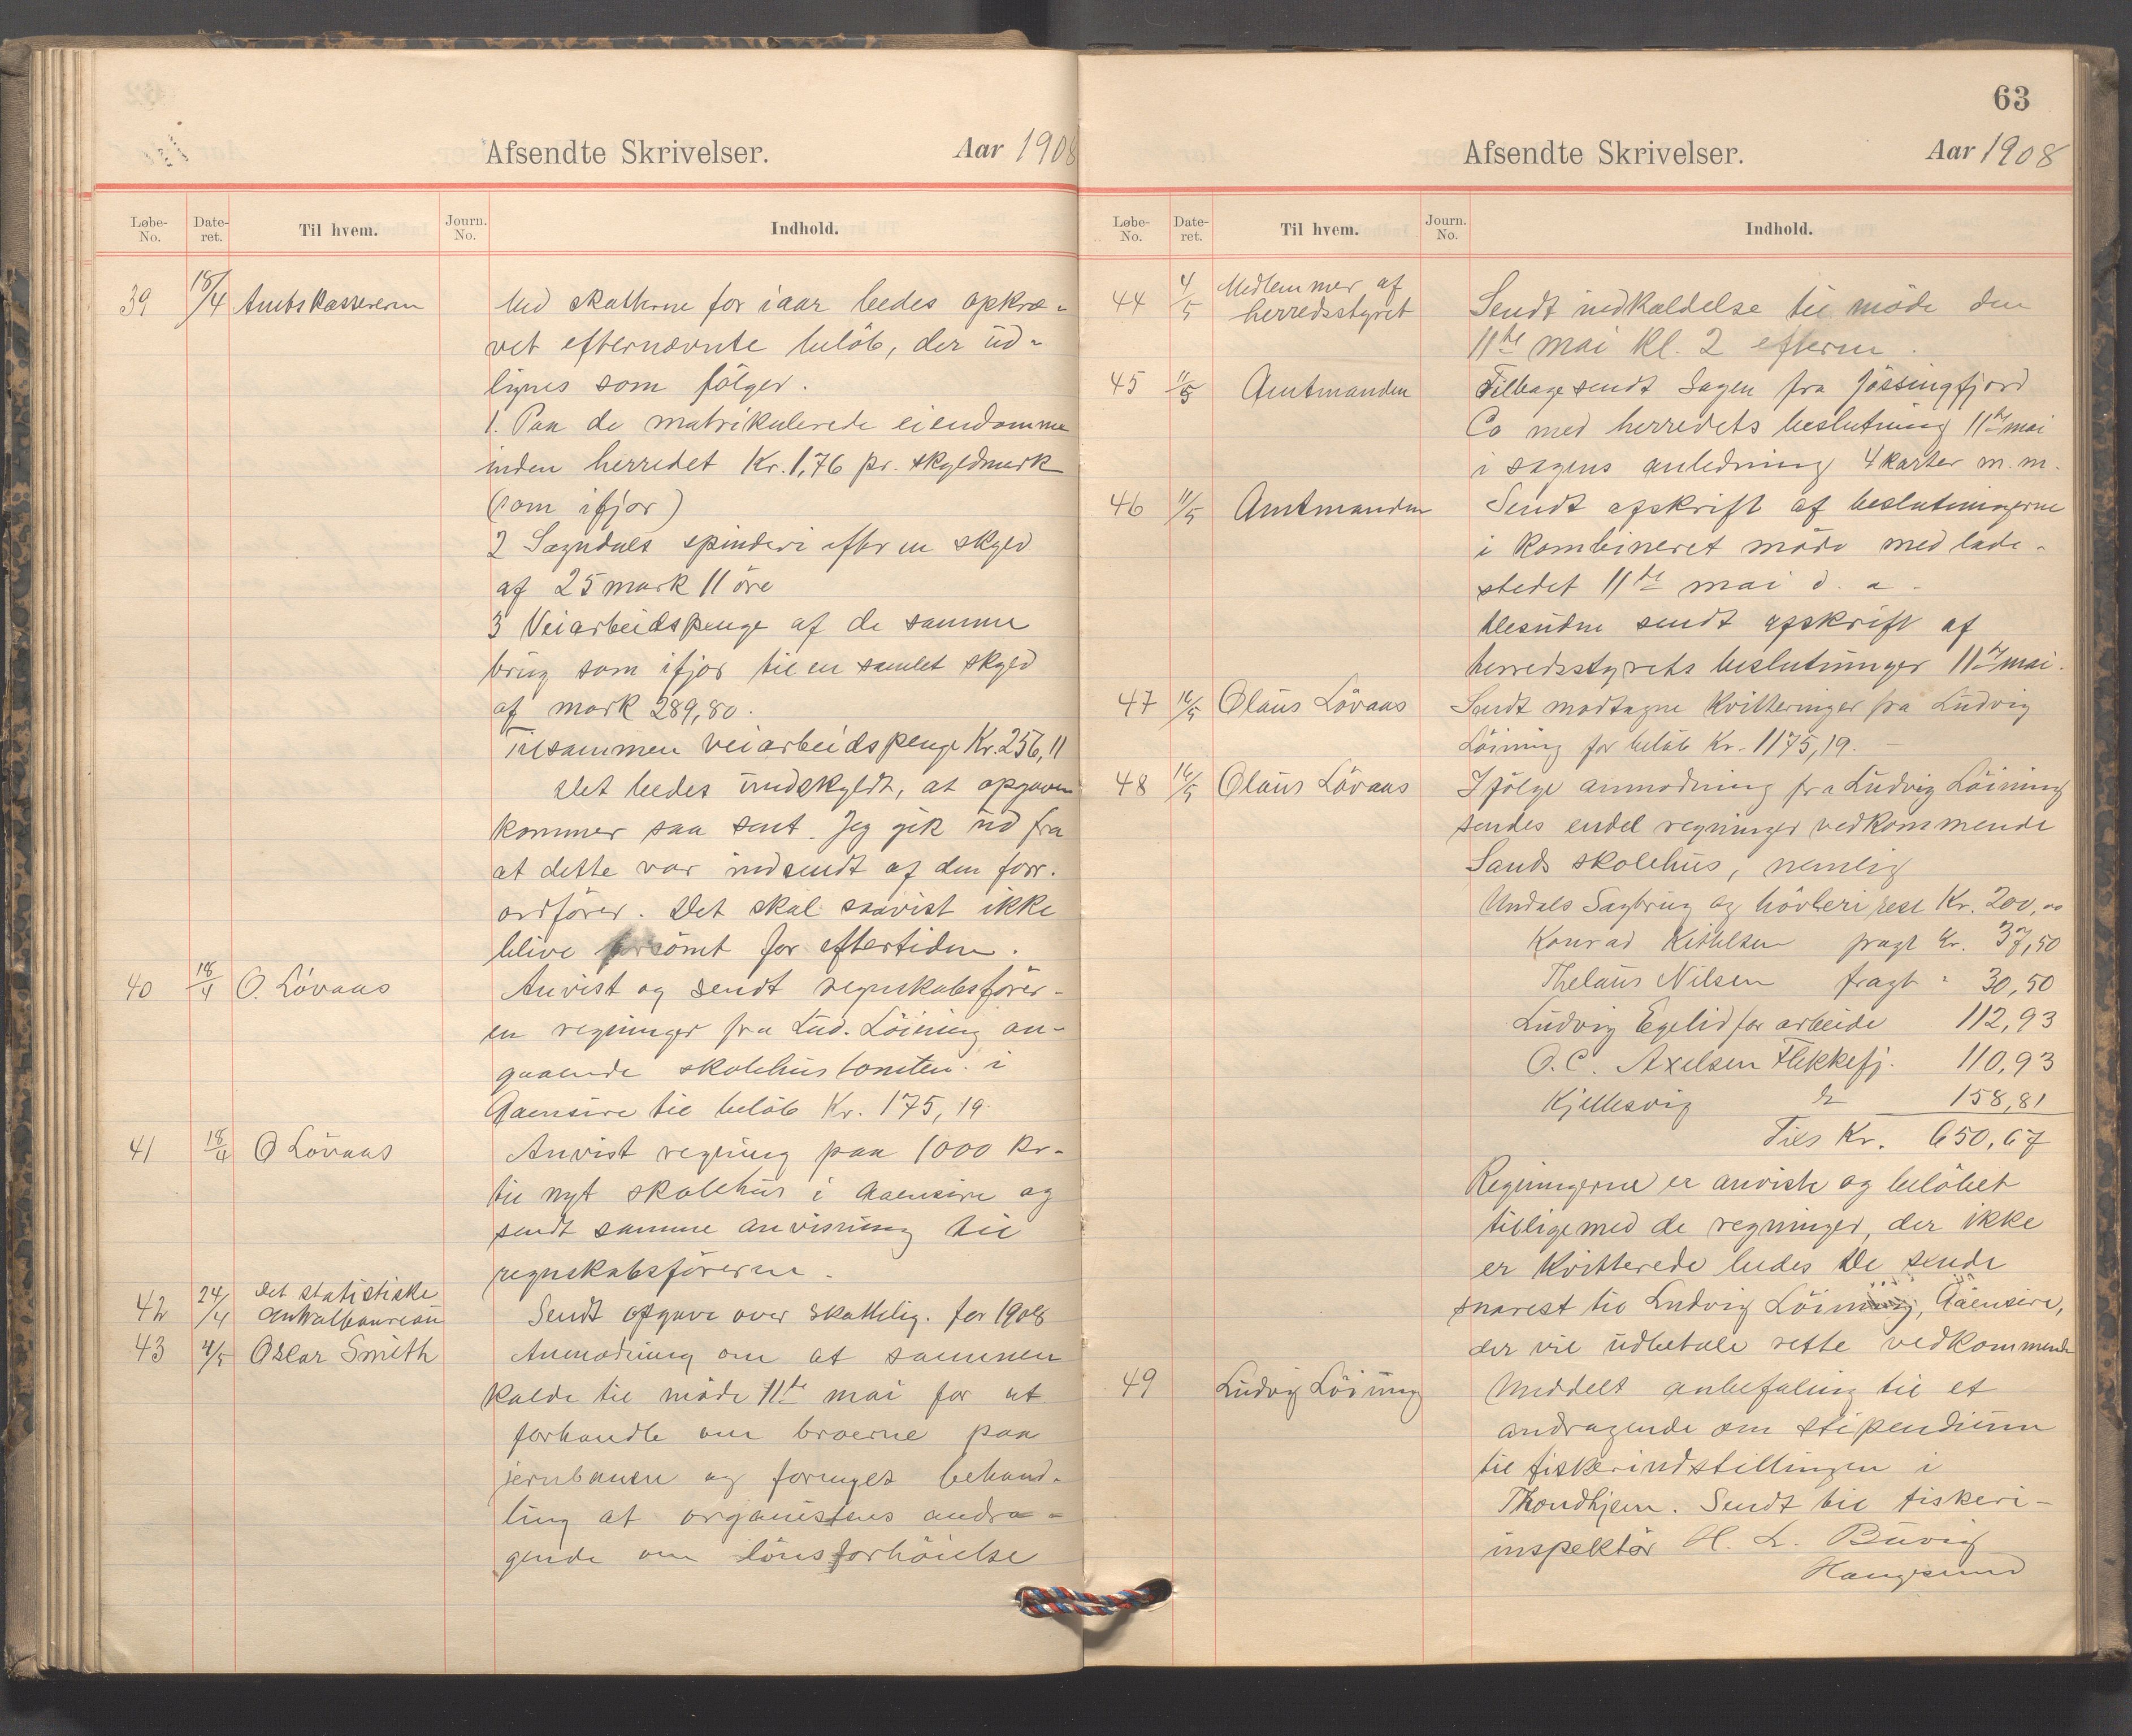 Afsendte Skrivelser. Aar 1908
Løbe-No. Date-ret. Til hvem. Journ. No. Indhold.
39 18/4 Amtskassereren Ved skatterne for iaar bedes opkræ-
vet efternævnte beløb, der ud-
lignes som følger.
1. Paa de matrikulerede eiendomme
inden herredet Kr. 1,76 pr. skyldmark
(som ifjor)
2 Sogndals spinderi efter en skyld
af 25 mark 11 öre
3 Veiarbeidspenge af de samme
brug som ifjor til en samlet skyld
af mark 289,80.
Tilsammen veiarbeidspenge Kr. 256,11
Det bedes undskyldt, at opgaven
kommer saa sent. Jeg gik ud fra
at dette var indsendt af den forr.
ordförer. Det skal saavist ikke
blive forsömt for eftertiden.
40 18/4 O. Lövaas Anvist og sendt regnskabsförer-
en regninger fra Lud. Löining an-
gaaende skolehustomten i
Aaensire til belöb Kr. 175,19.
41 18/4 O Lövaas Anvist regning paa 1000 Kr.
til nyt skolehus i Aaensire og
sendt samme anvisning til
regnskabsföreren.
42 24/4 Det statistiske
centralbaureau Sendt opgave over skattelig. for 1908
43 4/5 Oscar Smith Anmodning om at sammen
kalde til möde 11te mai for at
forhandle om broerne paa
jernbanen og fornyet behand-
ling af organistens andra-
gende om lönsforhöielse
63
Afsendte Skrivelser. Aar 1908
Løbe-No. Date-ret. Til hvem. Journ. No. Indhold.
44 4/5 Medlemmer af
herredsstyret Sendt indkaldelse til möde den
11te mai kl. 2 efterm.
45 11/5 Amtmanden Tilbagesendt Sagen fra Jössingfjord
Co med herredets beslutning 11te mai
i sagens anledning 4 karter m.m.
46 11/5 Amtmanden Sendt afskrift af beslutningerne
i kombineret möde med lade-
stedet 11te mai d. a.
Desuden sendt afskrift af
herredsstyrets beslutninger 11te mai.
47 16/5 Olaus Lövaas Sendt modtagne kvitteringer fra Ludvig
Löining for belöb Kr. 1175,19.
48 16/5 Olaus Lövaas Ifölge anmodning fra Ludvig Löining
sendes endel regninger vedkommende
Sands skolehus, nemlig
Undals Sagbrug og hövleri rest Kr. 200,00
Konrad Kittelsen fragt Kr. 37,50
Thelaus Nilsen fragt " 30,50
Ludvig Egelid for arbeide 112,93
O.C. Axelsen Flekkefj. 110,93
Kjellesvig 158,81
Tils Kr. 650,67
Regningerne er anviste og belöbet
tilligemed de regninger, der ikke
er kvitterede bedes De sende
snarest til Ludvig Löining, Aaensire,
der vil udbetale rette vedkommende
49 Ludvig Löining Meddelt anbefaling til et
andragende om stipendium
til fiskeriudstillingen i
Thondhjem. Sendt til fiskeri-
inspektör H. L. Buvig
Haugesund